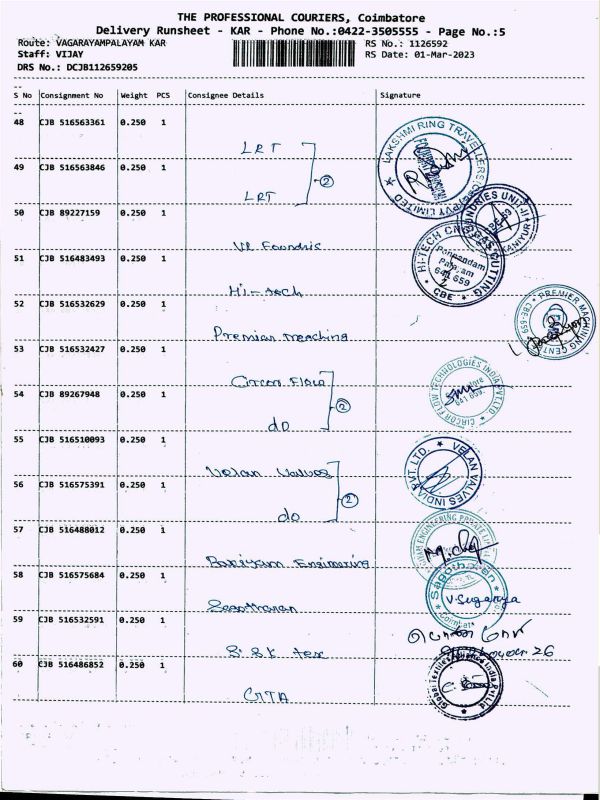 THE PROFESSIONAL COURIERS, Coimbatore
Delivery Runsheet - KAR - Phone No.:0422-3505555 - Page No.:5
Route: VAGARAYAMPALAYAM KAR
RS No.: 1126592
Staff: VIJAY
RS Date: 01-Mar-2023
DRS No.: DCJB112659205
S No Consignment No Weight PCS Consignee Details Signature
48 CJB 516563361 0.250 1
LRT
LAKSHMI RING TRAVELLERS
PVT LIMITED
2
49 CJB 516563846 0.250 1
LRT
50 CJB 89227159 0.250 1
VR Foundris
FOUNDRIES UNIT-II
51 CJB 516483493 0.250 1
Hi-tech
HI-TECH CNC GAS CUTTING
641 659
CBE
52 CJB 516532629 0.250 1
Premier Maching
PREMIER MACHINING
CBE-659
53 CJB 516532427 0.250 1
Circor Flow
2
CIRCOR FLOW TECHNOLOGIES INDIA PVT.LTD
641 659.
54 CJB 89267948 0.250 1
do
55 CJB 516510093 0.250 1
Velan Valves
2
VELAN VALVES INDIA PVT. LTD.
56 CJB 516575391 0.250 1
do
57 CJB 516488012 0.250 1
Engineering
ENGINEERING PRIVATE
58 CJB 516575684 0.250 1
V. Suganya
59 CJB 516532591 0.250 1
tex
26
60 CJB 516486852 0.250 1
GTA
Global Textile Alliance India Pvt Ltd